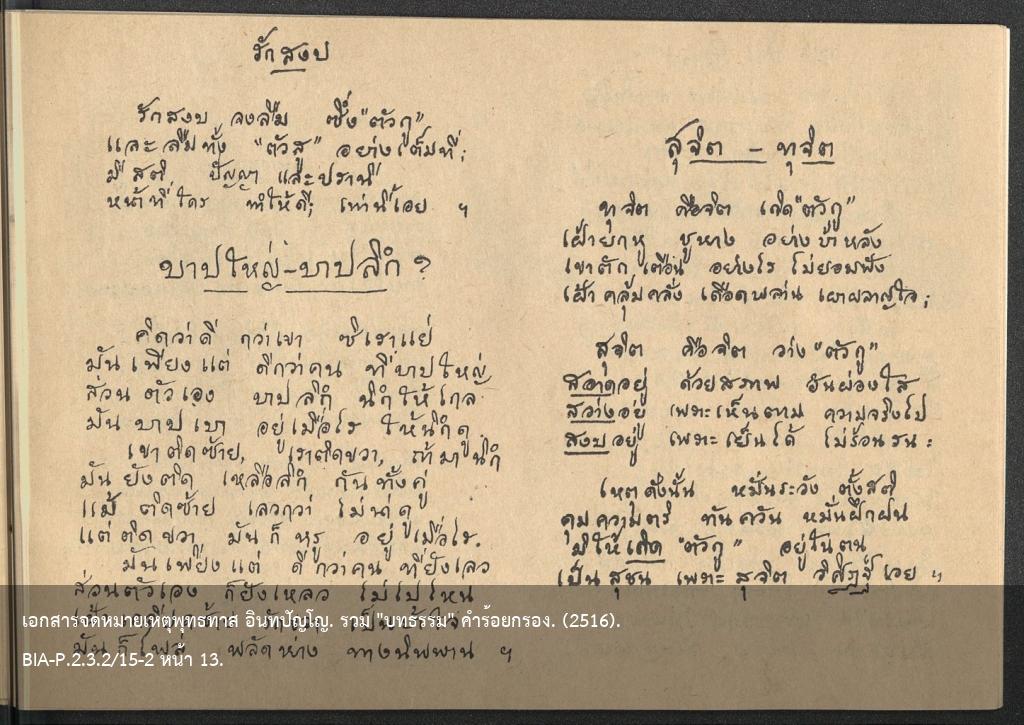 รักสงบ
รักสงบ จงลืม ซึ่ง "ตัวกู"
และลืมทั้ง "ตัวสู" อย่างเต็มที่;
มีสติ ปัญญา และปรานี
หน้าที่ใคร ทำให้ดี; เท่านี้เอย ฯ
บาปใหญ่-บาปลึก ?
คิดว่าดี กว่าเขา ซิเราแย่
มันเพียงแต่ ดีกว่าคน ที่บาปใหญ่
ส่วนตัวเอง บาปลึก นึกให้ไกล
มันบาปเบา อยู่เมื่อไร ให้นึกดู
เขาติดซ้าย, เราติดขวา, ถ้ามานึก
มันยังติด เหลือลึก กันทั้งคู่
แม้ ติดซ้าย เลวกว่า ไม่น่าดู
แต่ติดขวา มันก็หรู อยู่เมื่อไร.
มันเพียงแต่ ดีกว่าคน ที่ยังเลว
ส่วนตัวเอง ก็ยังเหลว ไม่ไปไหน
มันก็ไพล่ พลัดห่าง ทางนิพพาน ฯ
สุจิต - ทุจิต
ทุจิต คือจิต เกิด "ตัวกู"
เฝ้ายกหู ชูหาง อย่างบ้าหลัง
เขาตัก เตือน อย่างไร ไม่ยอมฟัง
เฝ้าคลุ้มคลั่ง เดือดพล่าน เผาผลาญใจ;
สุจิต คือจิต ว่าง "ตัวกู"
สอาดอยู่ ด้วยสภาพ อันผ่องใส
สว่างอยู่ เพราะเห็นตาม ความจริงไป
สงบอยู่ เพราะเย็นได้ ไม่ร้อนรน:
เหตุดังนั้น หมั่นระวัง ตั้งสติ
คุมความตริ ทันควัน หมั่นฝึกฝน
มิให้เกิด "ตัวกู" อยู่ในตน
เป็นสุชน เพราะสุจิต วิศิฏฐ์เอย ฯ
เอกสารจดหมายเหตุพุทธทาส อินทปัญโญ. รวม "บทธรรม" คำร้อยกรอง. (2516).
BIA-P.2.3.2/15-2 หน้า 13.